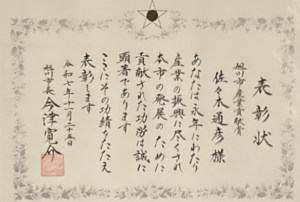 表彰状
旭川市産業貢献賞
佐々木通彦様
あなたは永年にわたり
産業の振興に尽くされ
本市の発展のために
貢献された功労は誠に
顕著であります
ここにその功績をたたえ
表彰します
令和七年十一月二十五日
旭川市長 今津寛介